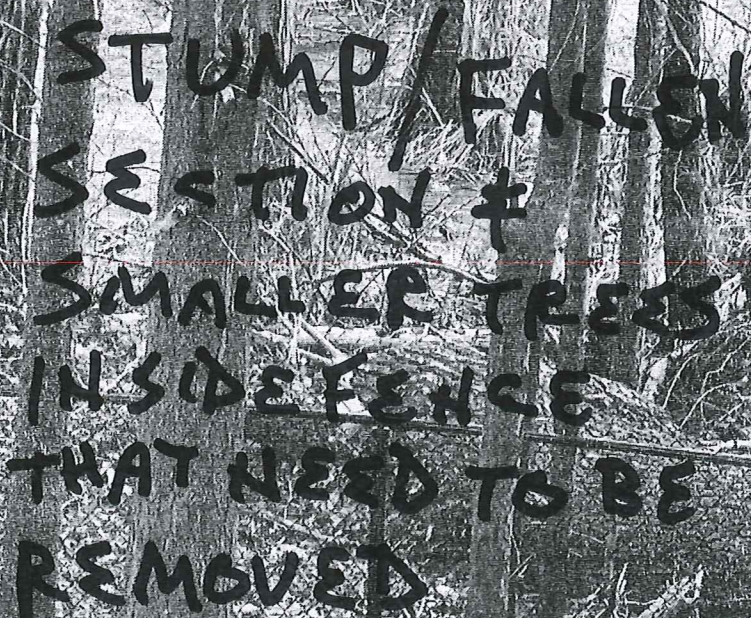 STUMP/FALLEN
SECTION &
SMALLER TREES
INSIDE FENCE
THAT NEED TO BE
REMOVED